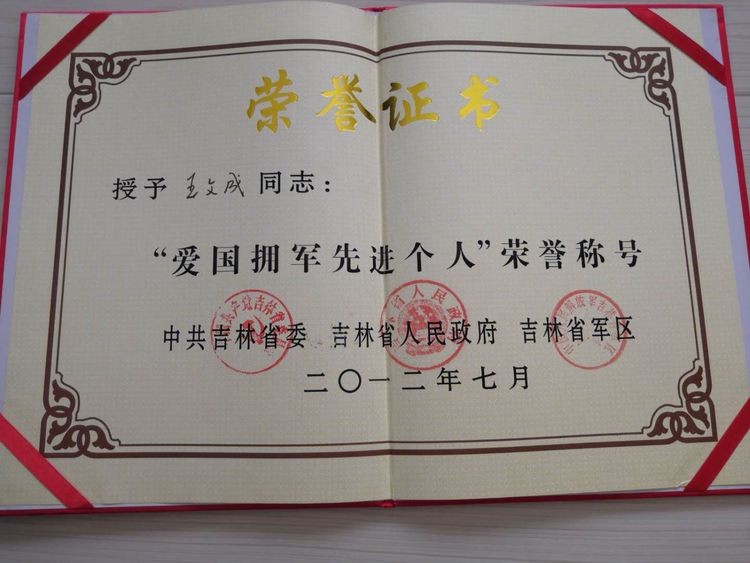 荣誉证书
授予 王文成 同志：
“爱国拥军先进个人”荣誉称号
中共吉林省委 吉林省人民政府 吉林省军区
二〇一二年七月